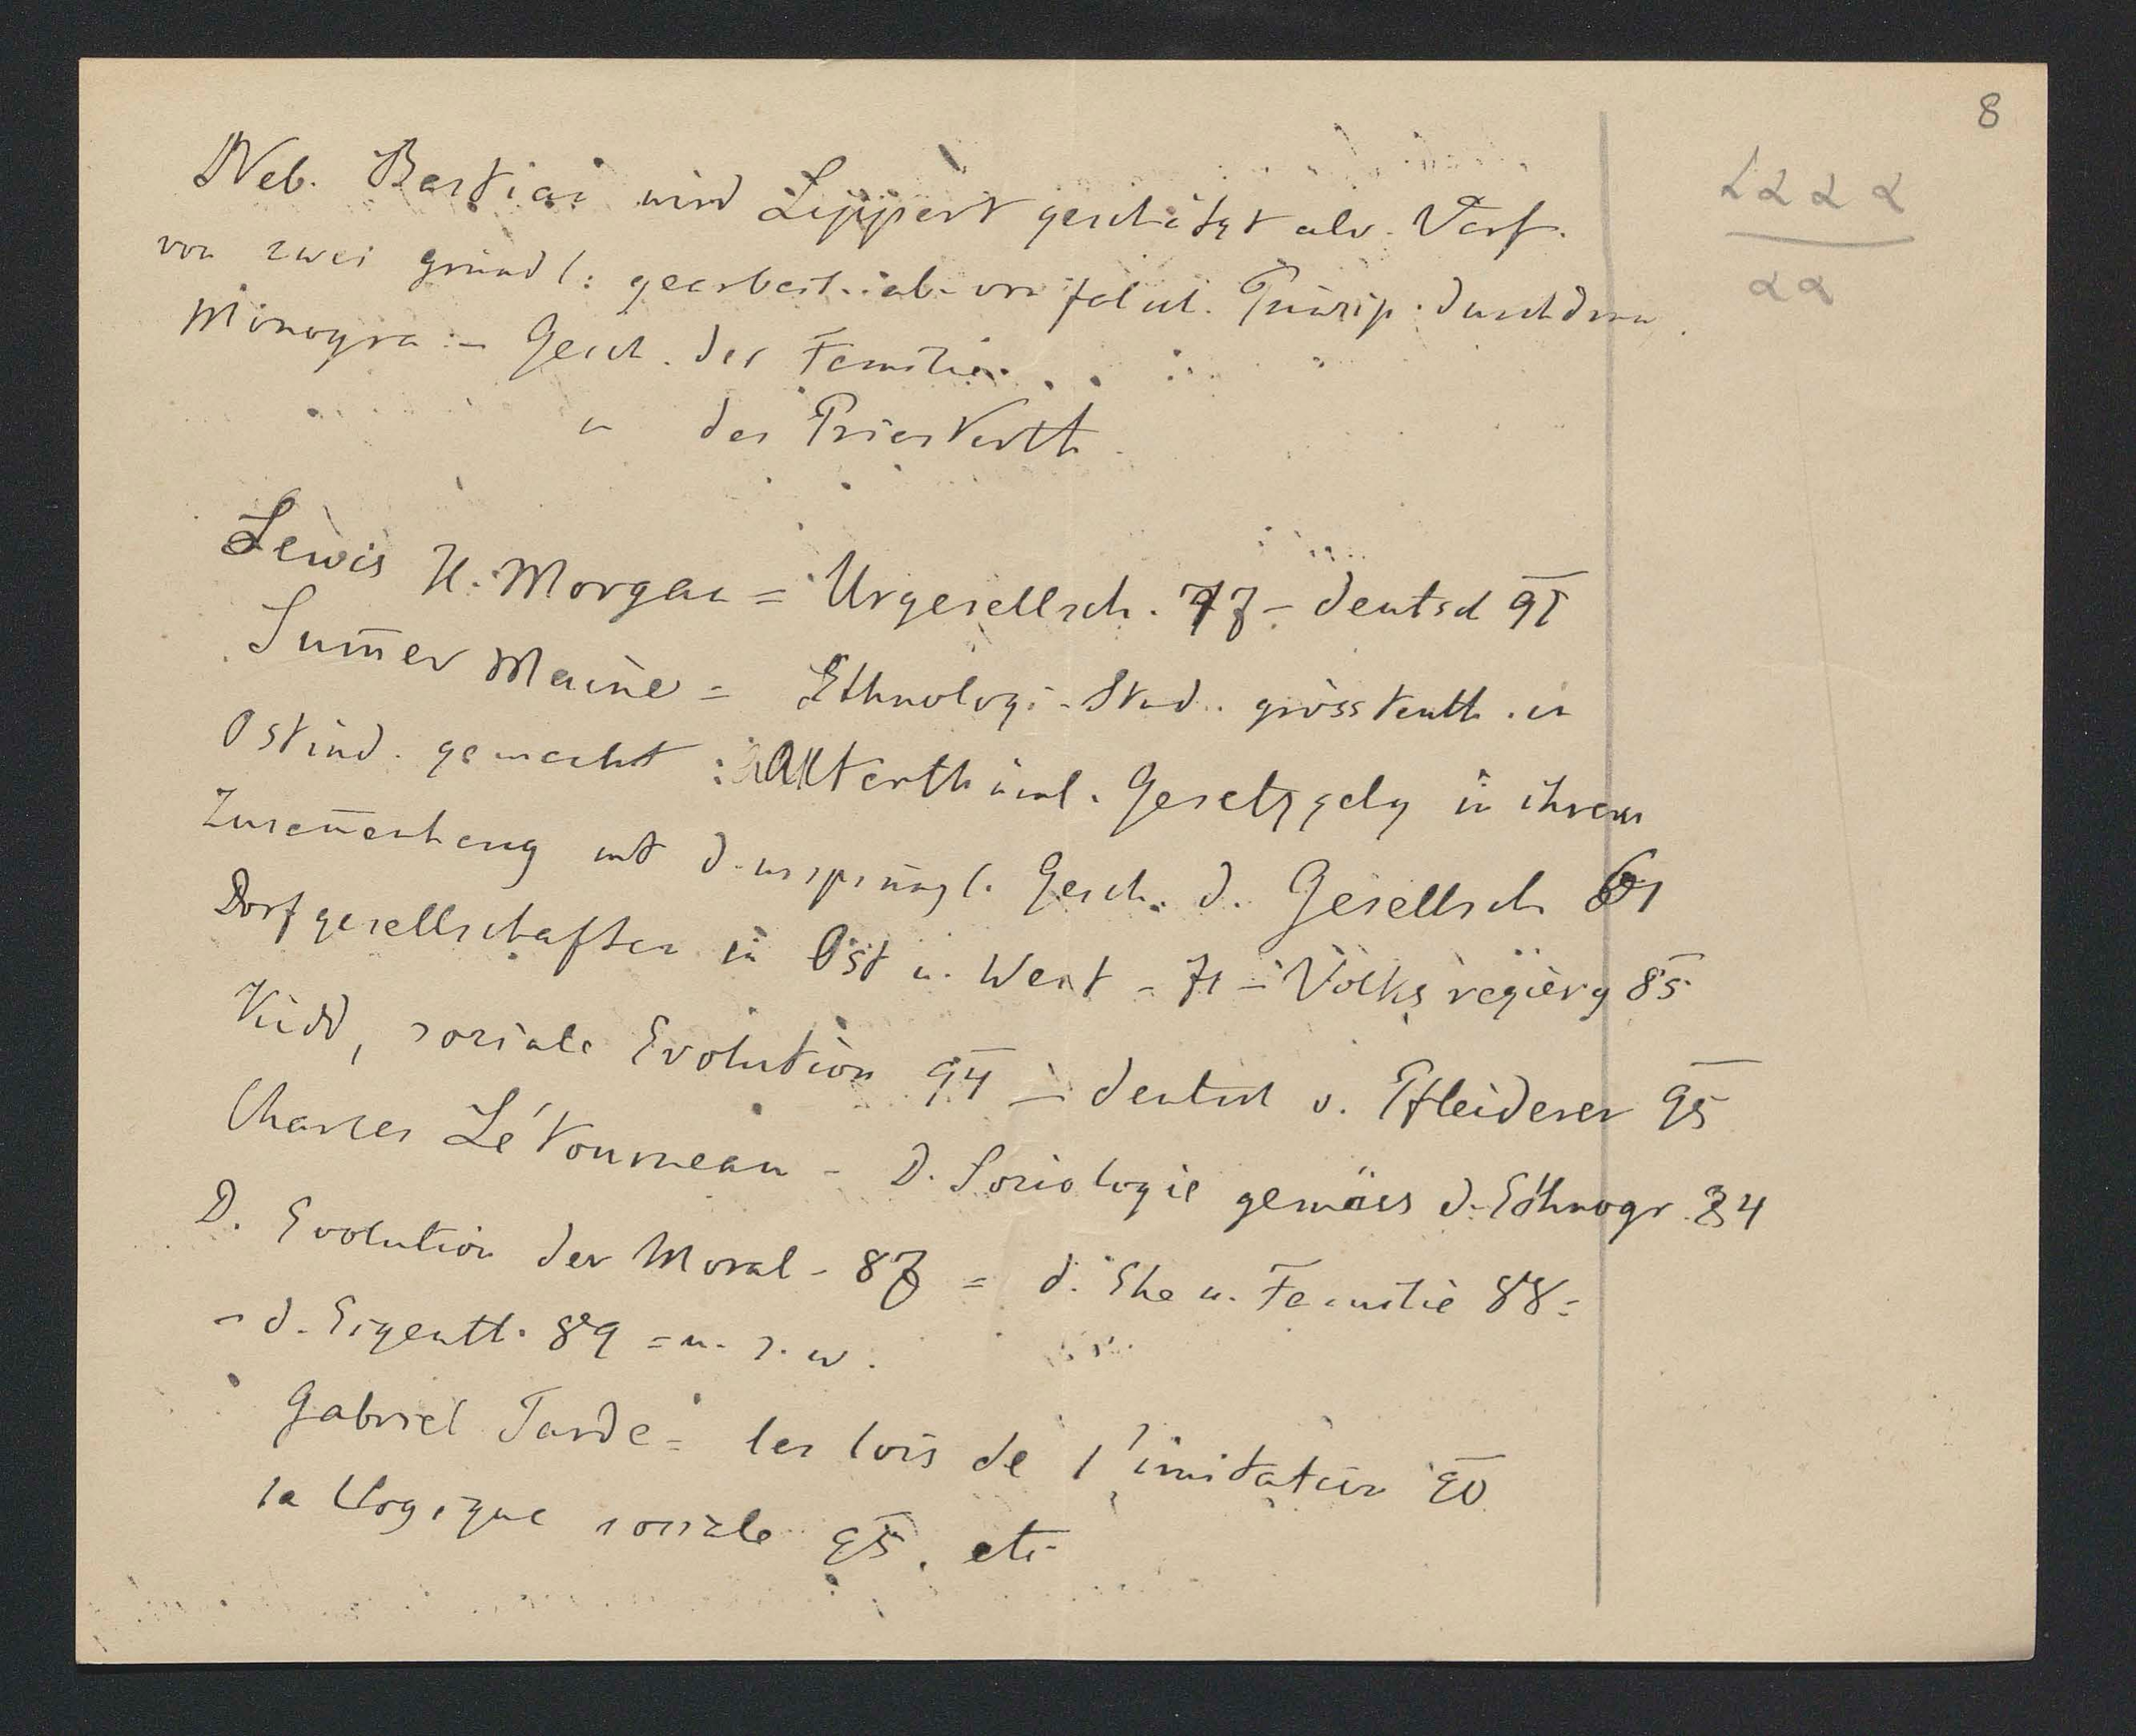 8
αααα
αα
Neb. Bastian wird Lippert geschätzt als Verf.
von zwei gründl. gearbeit. ab. von falsch. Prinzip. durchdrun.
Monogra - Gesch. der Familie
" des Priesterth.
Lewis H. Morgan = Urgesellsch. 77 - deutsch 91
Sum̄er Maine = Ethnolog. Stud. grösstenth. in
Ostind. gemacht : Alterthüml. Gesetzgebg in ihrem
Zusam̄enhang mit d. ursprüngl. Gesch. d. Gesellsch 61
Dorfgesellschaften in Ost u. West - 71 - Volksregierg 85
Kidd, soziale Evolution 94 - deutsch v. Pfleiderer 95
Charles Létourneau - D. Soziologie gemäss d. Ethnogr. 84
D. Evolution der Moral - 87 = d. Ehe u. Familie 88 =
- d. Eigenth. 89 = u. s. w.
Gabriel Tarde = les lois de l'imitation 90
la Logique sociale 95. etc